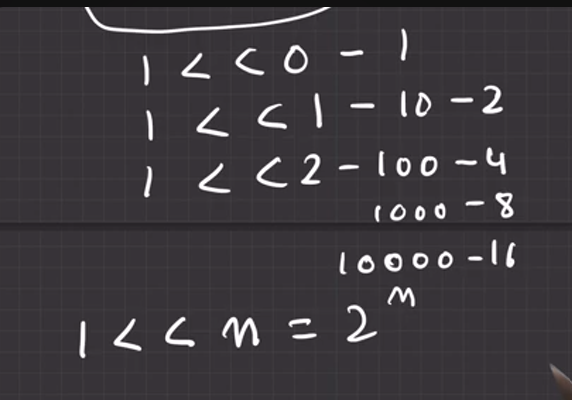 1 < < 0 - 1
1 < < 1 - 10 - 2
1 < < 2 - 100 - 4
1000 - 8
10000 - 16
1 < < n = 2^n